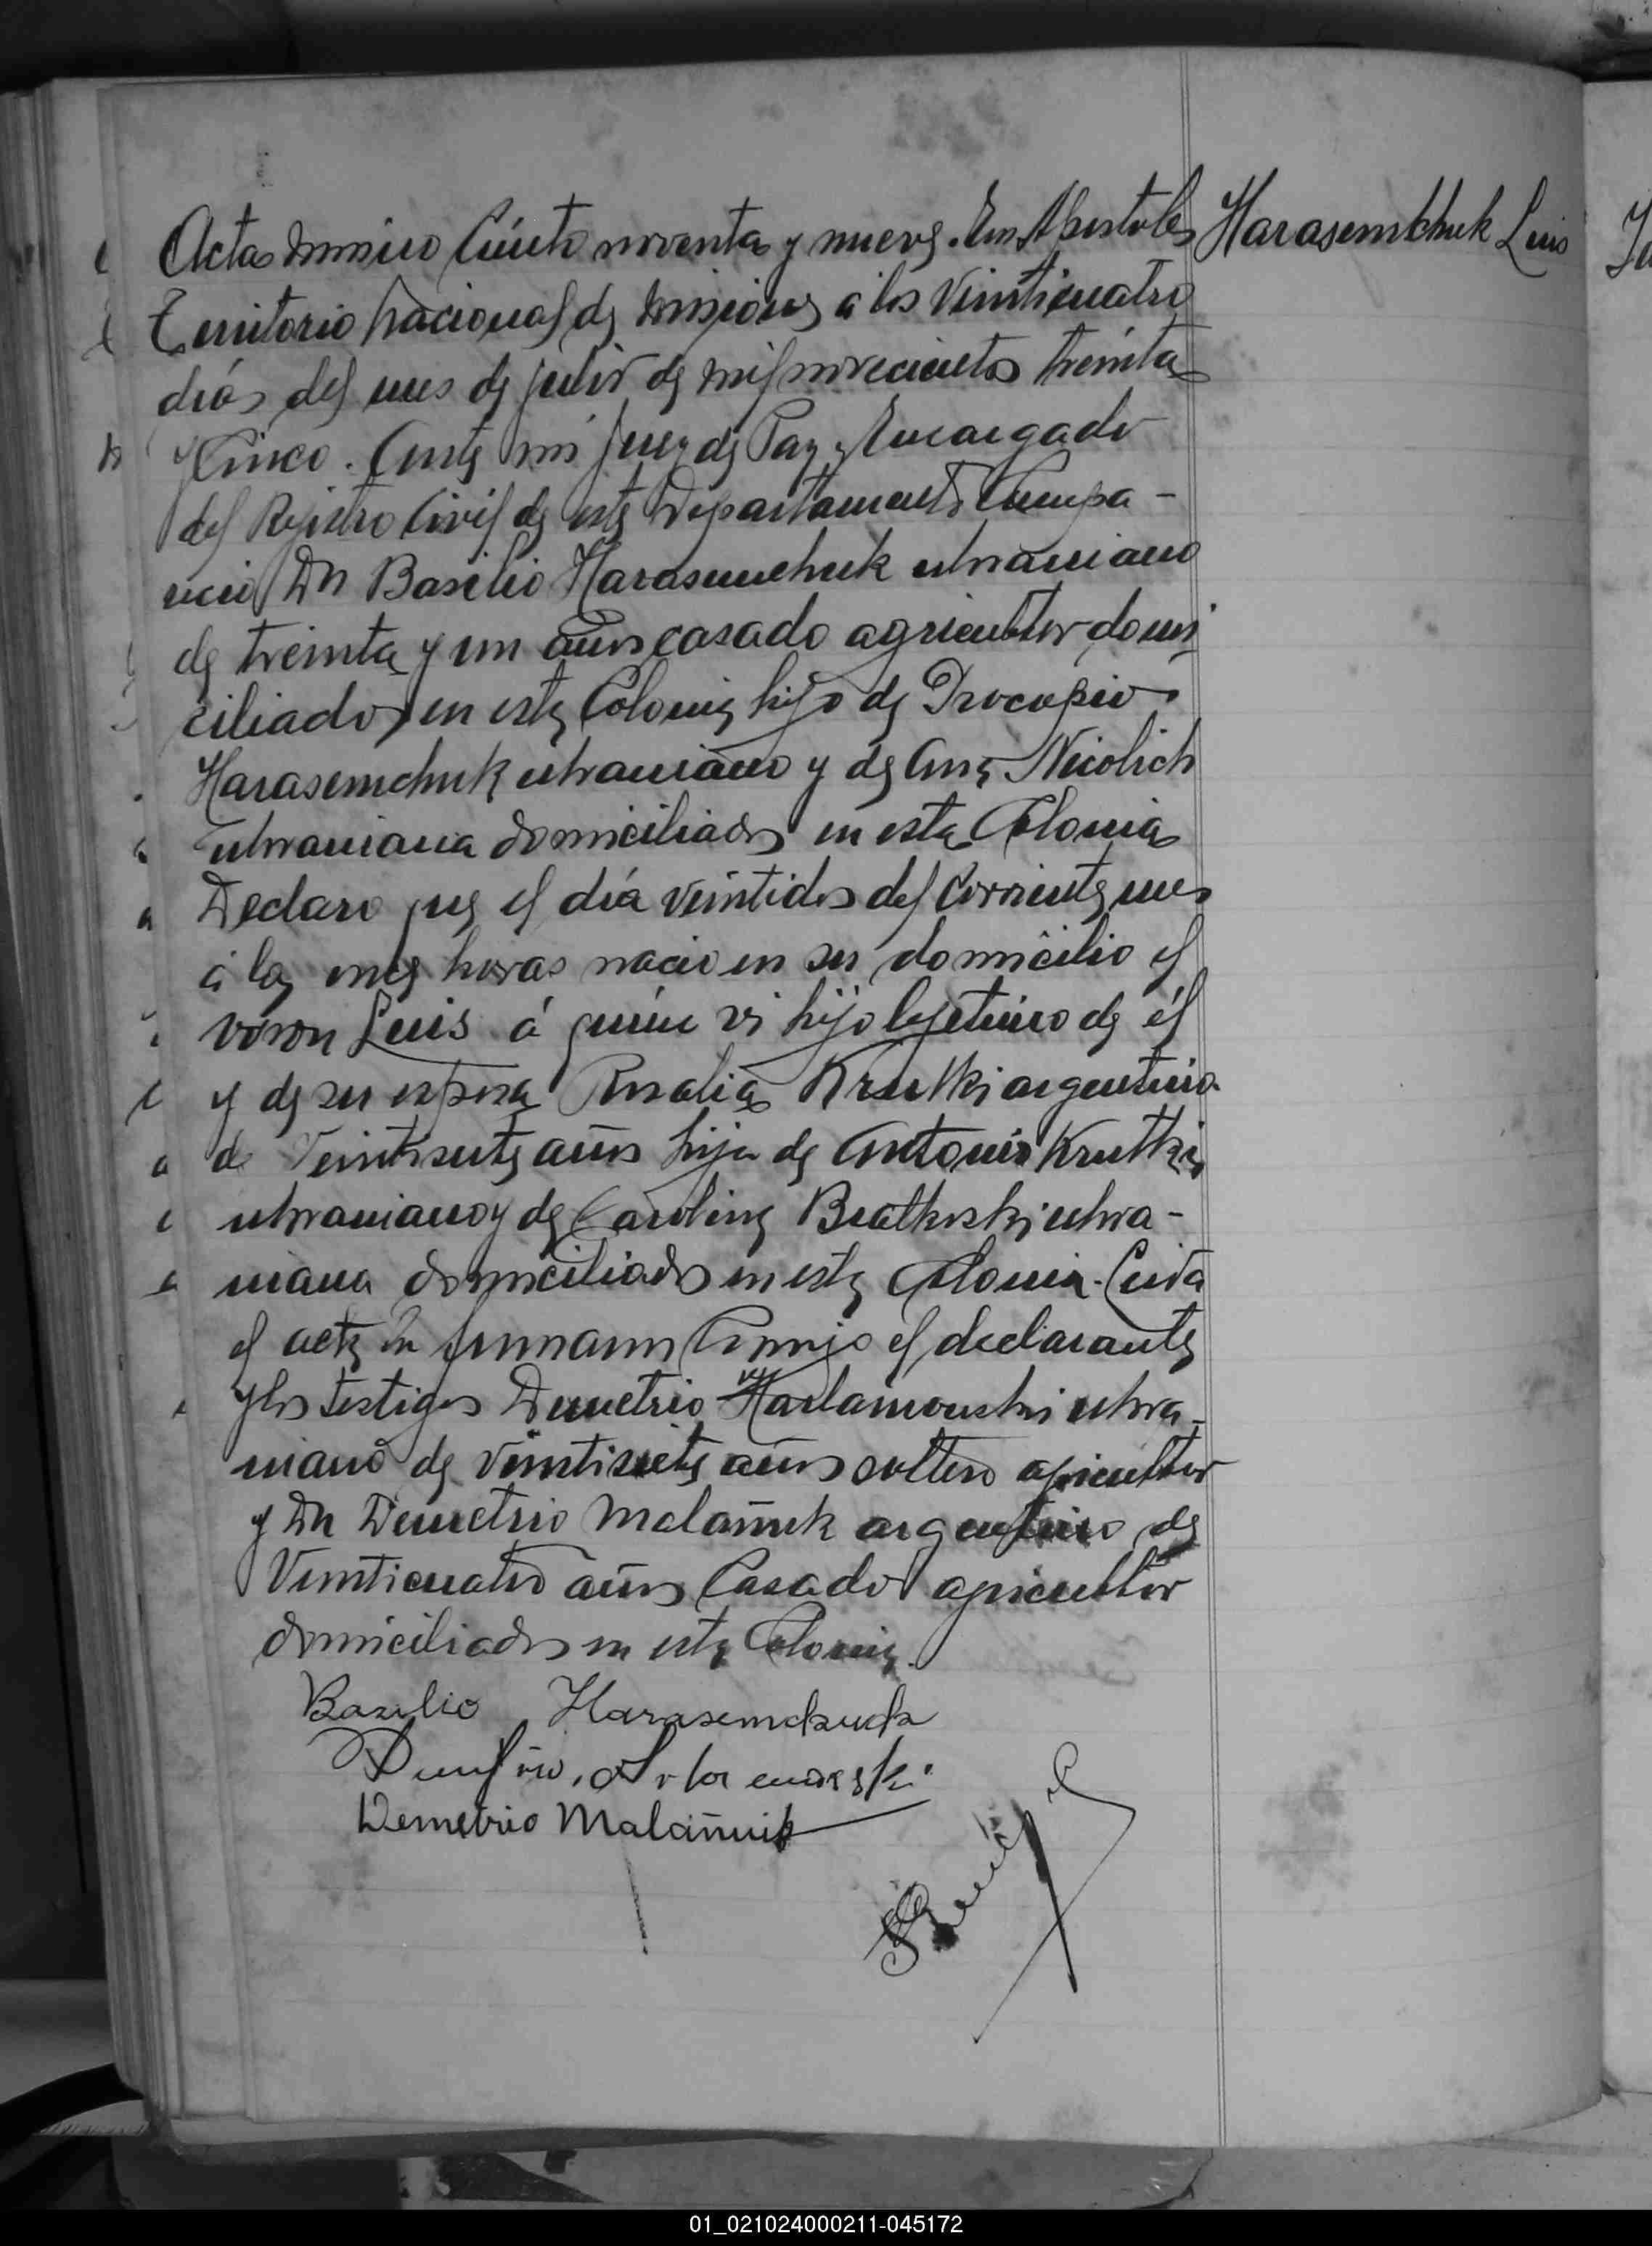 Acta número Ciento noventa y nueve. En Apostoles
Harasemkhuk Luis
Territorio nacional de Misiones a los veinticuatro
días del mes de julio de mil novecientos treinta
y Cinco. Ante mi Juez de Paz Encargado
del Rejistro Civil de este Departamento Compa-
recio Dn Basilio Harasemchuk ukraniano
de treinta y un años casado agricultor domi
ciliado en esta Colonia hijo de Procopio
Harasemchuk ukraniano y de Ana Nicolich
ukraniana domiciliados en esta Colonia
Declaro que el día veintidos del Corriente mes
á las once horas nacio en su domicilio el
varon Luis á quien vi hijo lejetimo de él
y de su esposa Rosalia Krutki argentina
de Veintisiete años hija de Antonio Krutki
ukraniano y de Carolina Bialkoski ukra-
niana domiciliados en esta Colonia. Leida
el acta la firmaron Conmigo el declarante
y los testigos Demetrio Harlamouski ukra-
niano de veintisiete años soltero agricultor
y Dn Demetrio Malañuk argentino de
Veinticuatro años Casado agricultor
domiciliados en esta Colonia.
Basilio Harasemchuck
Demetrio Malañuik
01_021024000211-045172